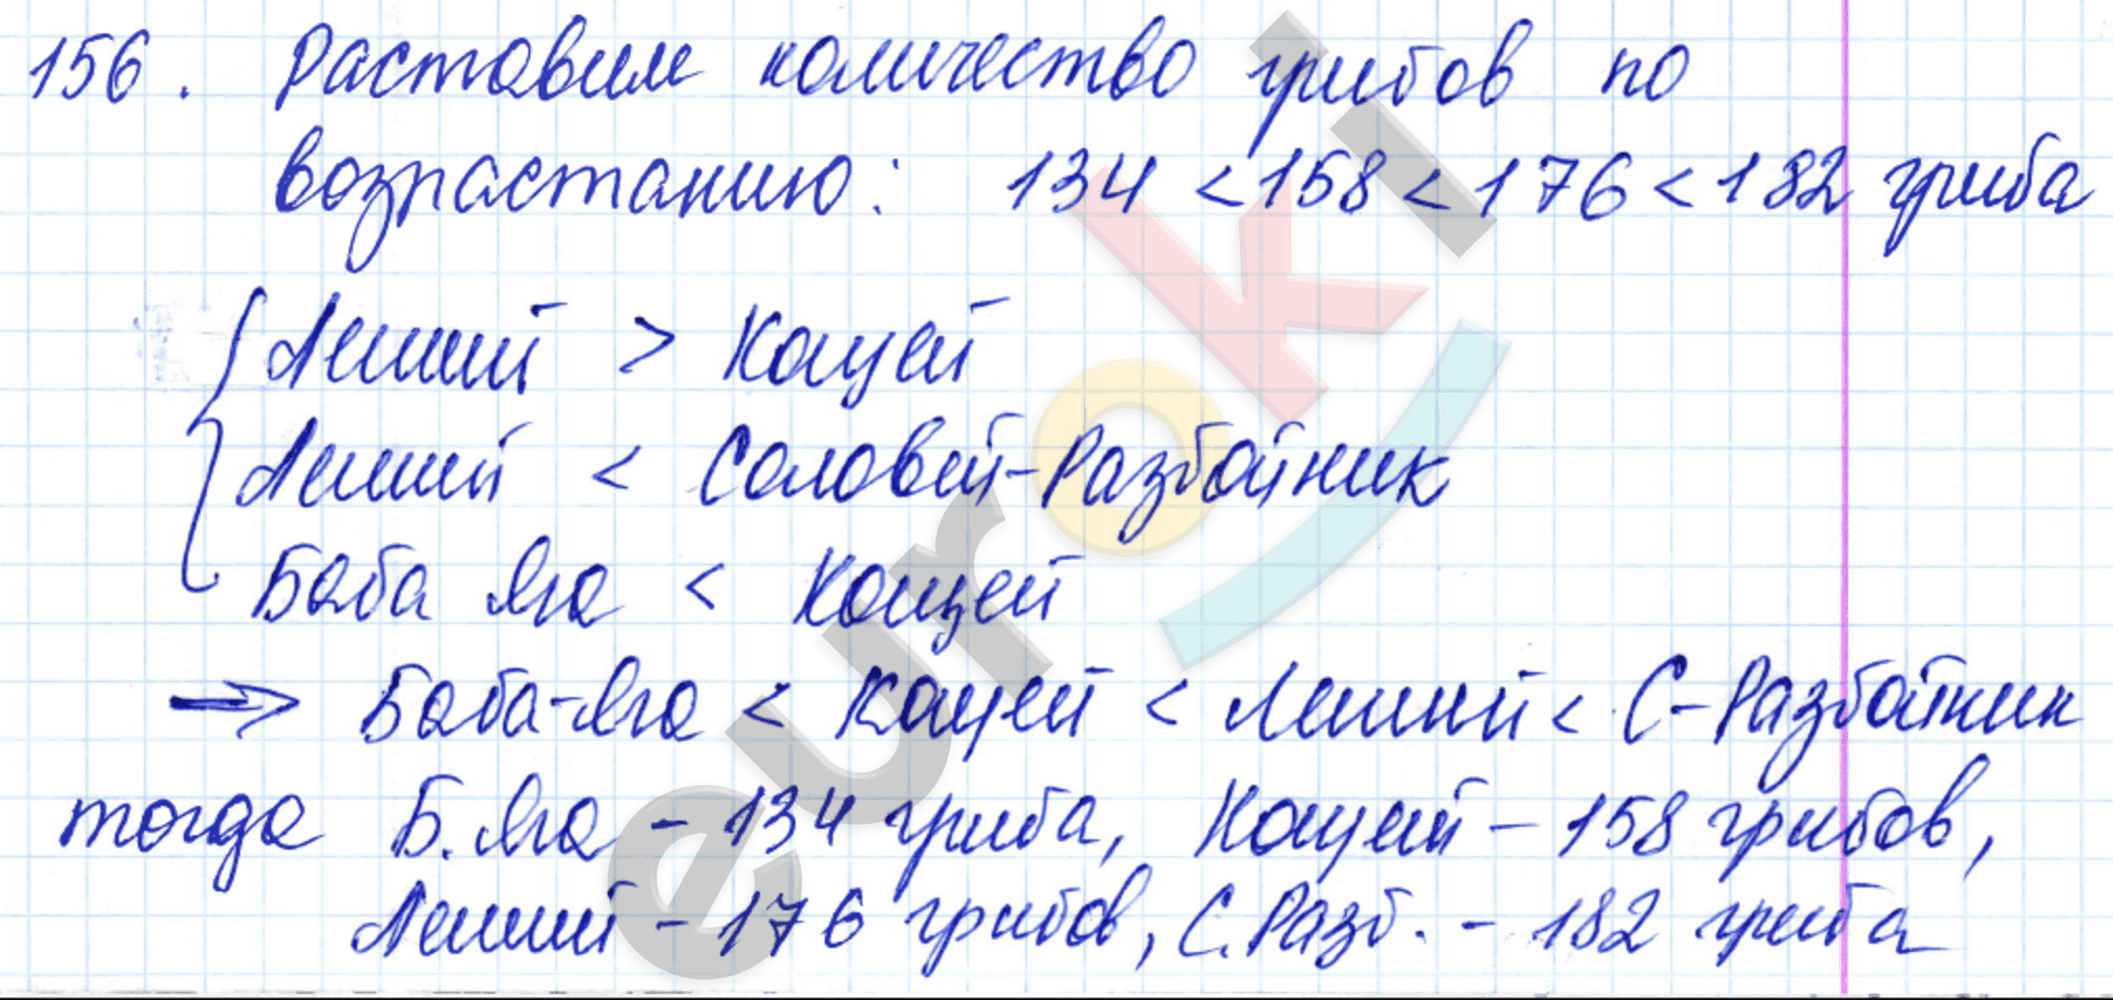 156. Раставим количество грибов по
возрастанию: 134 < 158 < 176 < 182 гриба
Леший > Кощей
Леший < Соловей-Разбойник
Баба Яга < Кощей
⇒ Баба-Яга < Кощей < Леший < С-Разбойник
тогда Б.Яга - 134 гриба, Кощей - 158 грибов,
Леший - 176 грибов, С.Разб. - 182 гриба
euroki